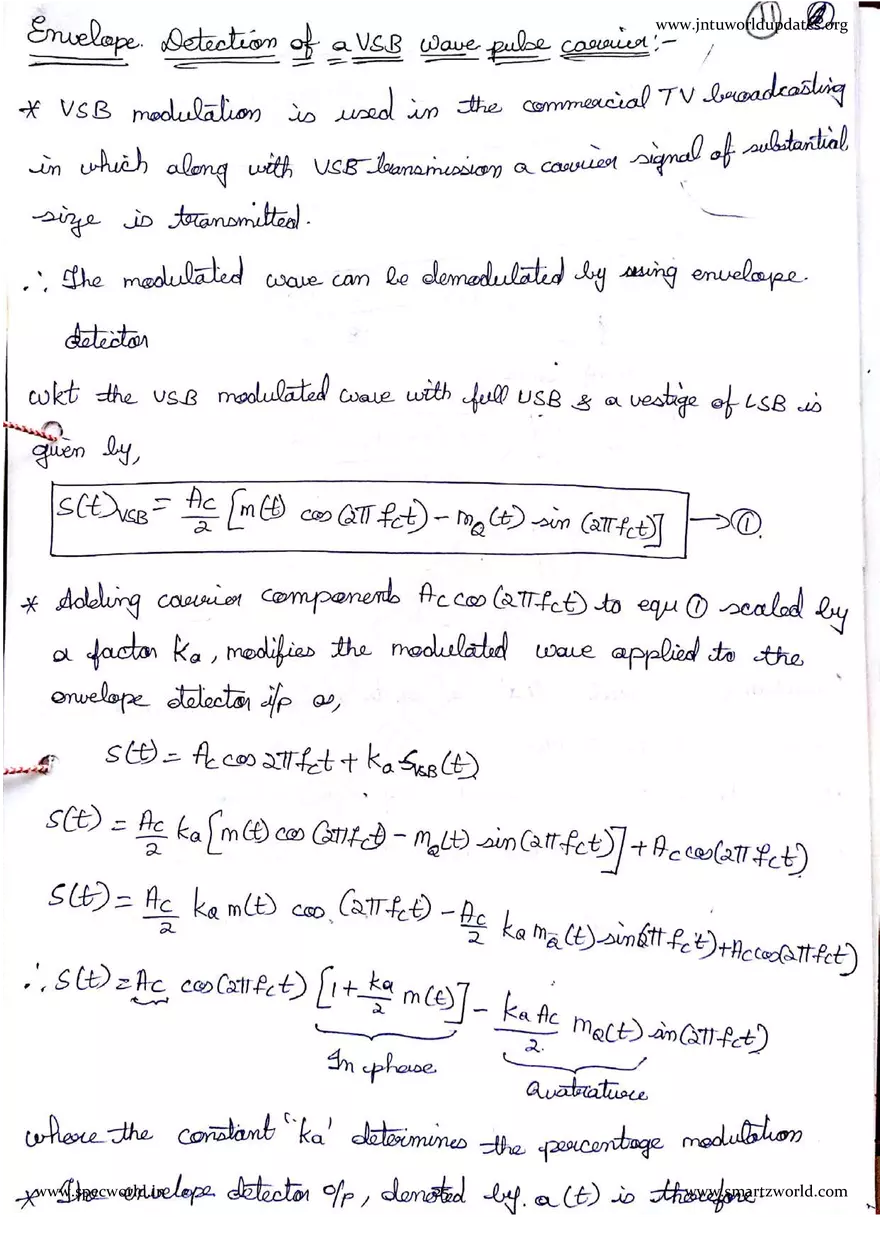 www.jntuworldupdates.org
11
Envelope Detection of a VSB wave pulse carrier:-
* VSB modulation is used in the commercial TV broadcasting
in which along with VSB transmission a carrier signal of substantial
size is transmitted.
∴ The modulated wave can be demodulated by using envelope.
detector
wkt the VSB modulated wave with full USB & a vestige of LSB is
given by,
S(t)VSB = Ac/2 [m(t) cos (2πfct) - mQ(t) sin (2πfct)] → ①.
* Adding carrier components Ac cos (2πfct) to equ ① scaled by
a factor ka, modifies the modulated wave applied to the
envelope detector i/p as,
S(t) = Ac cos 2πfct + ka SVSB(t)
S(t) = Ac/2 ka [m(t) cos (2πfct) - mQ(t) sin (2πfct)] + Ac cos(2πfct)
S(t) = Ac/2 ka m(t) cos. (2πfct) - Ac/2 ka mQ(t) sin(2πfct) + Ac cos(2πfct)
∴ S(t) = Ac cos(2πfct) [1 + ka/2 m(t)] - kaAc/2 mQ(t) sin(2πfct)
In phase
Quatrature
where the constant 'ka' determines the percentage modulation
* The envelope detector o/p, denoted by. a(t) is therefore
www.specworld.in
www.smartzworld.com